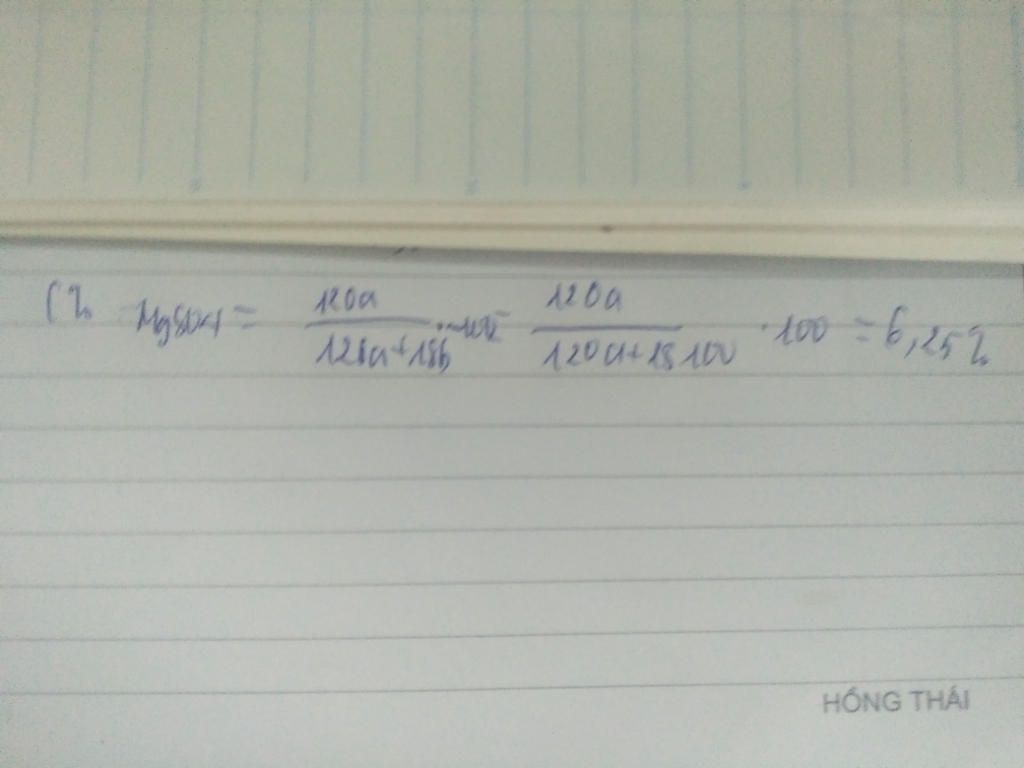 C% MgSO4 = 120a / 120a+18b . 100 = 120a / 120a+18 100 . 100 = 6,25%
HỒNG THÁI